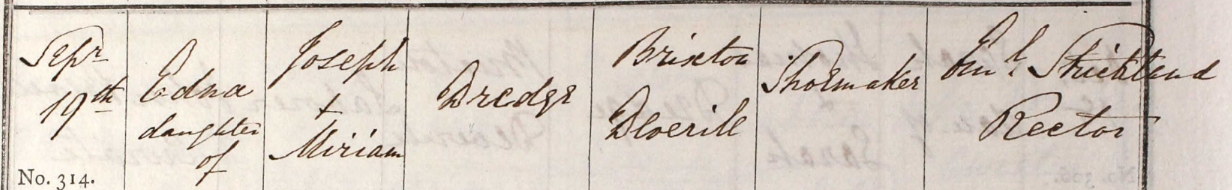 Sepr
19th
No. 314.
Edna
daughter
of
Joseph
+
Miriam
Bredge
Brixton
Deverill
Shoemaker
Strickland
Rector